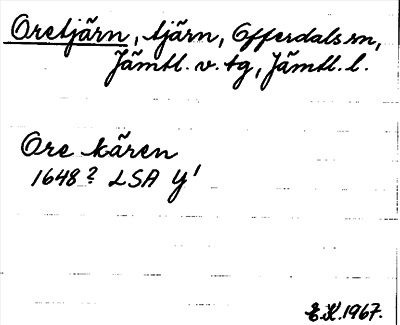 Oretjärn, tjärn, Offerdals sn,
Jämtl. v. tg, Jämtl. l.
Ore kären
1648? LSA Y¹
E.K.1967.